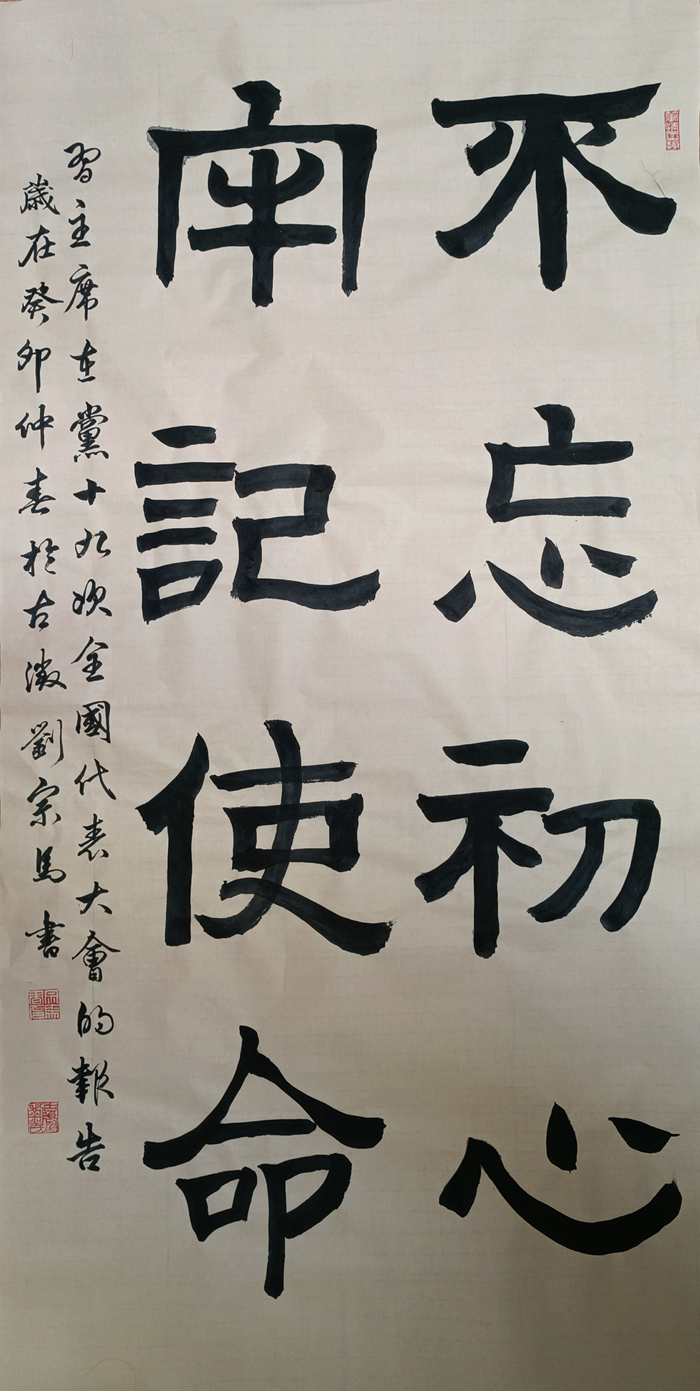 不忘初心
牢記使命
習主席在黨十九次全國代表大會的報告
歲在癸卯仲春於古劉宗馬書